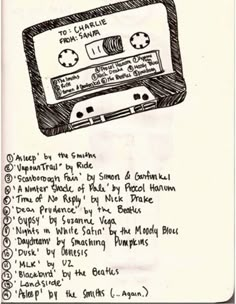 TO: CHARLIE
FROM: SAM
① 'Asleep' by the Smiths
② 'Vapour Trail' by Ride
③ 'Scarborough Fair' by Simon & Garfunkel
④ 'A Winter Shade of Pale' by Procol Harum
⑤ 'Time of No Reply' by Nick Drake
⑥ 'Dear Prudence' by the Beatles
⑦ 'Gypsy' by Suzanne Vega
⑧ 'Nights in White Satin' by the Moody Blues
⑨ 'Daydream' by Smashing Pumpkins
⑩ 'Dusk' by Genesis
⑪ 'MLK' by U2
⑫ 'Blackbird' by the Beatles
⑬ 'Landslide'
⑭ 'Asleep' by the Smiths (...Again)